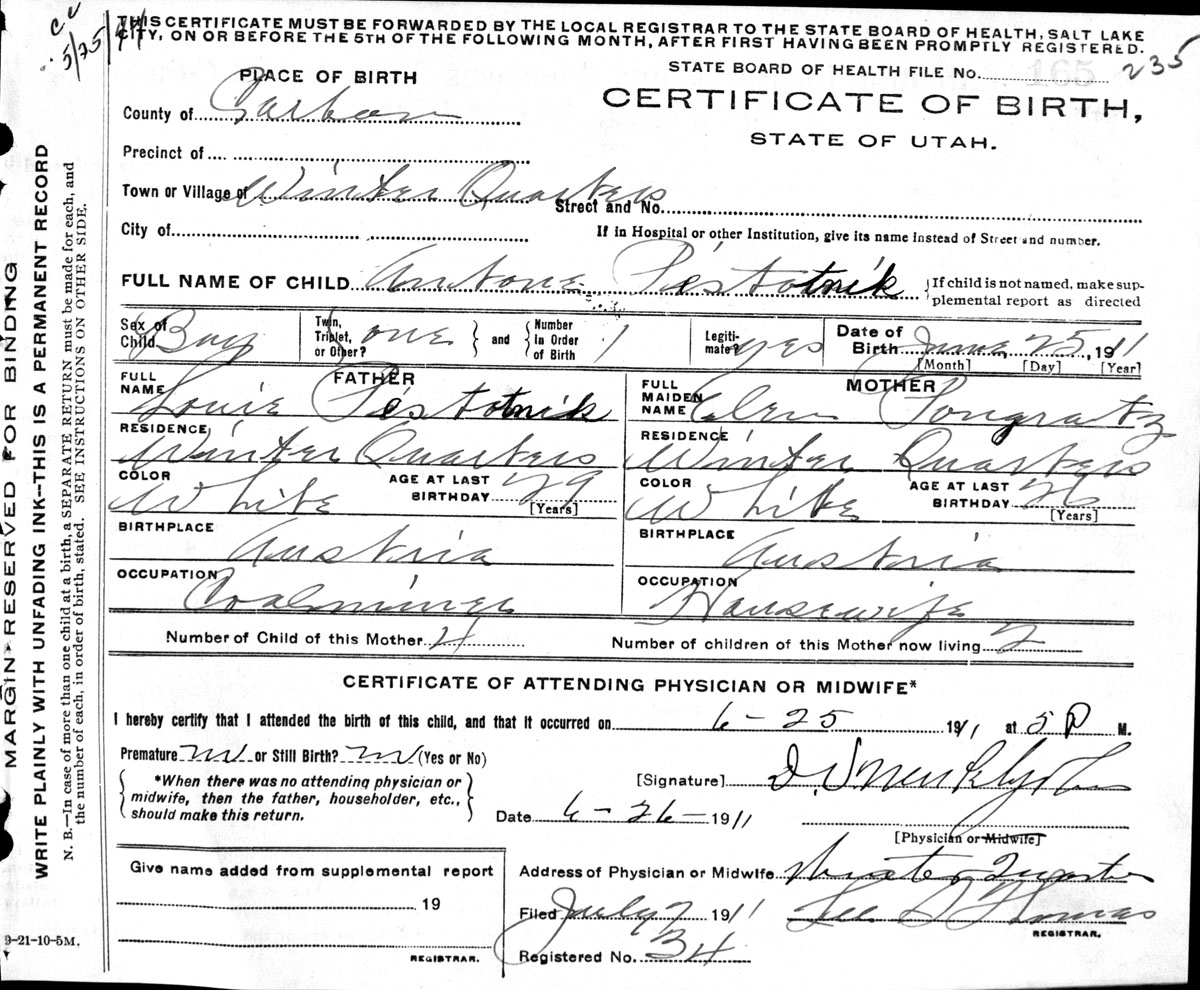 THIS CERTIFICATE MUST BE FORWARDED BY THE LOCAL REGISTRAR TO THE STATE BOARD OF HEALTH, SALT LAKE
CITY, ON OR BEFORE THE 5TH OF THE FOLLOWING MONTH, AFTER FIRST HAVING BEEN PROMPTLY REGISTERED.
5/25/
STATE BOARD OF HEALTH FILE No. 165 235
PLACE OF BIRTH
CERTIFICATE OF BIRTH,
STATE OF UTAH.
County of Carbon
Precinct of
Town or Village of Winter Quarters
Street and No.
City of
If in Hospital or other Institution, give its name instead of Street and number.
FULL NAME OF CHILD Antone Pestotnik
If child is not named, make sup-
plemental report as directed
Sex of Child Boy
Twin, Triplet, or Other? one
and
Number in Order of Birth 1
Legiti-mate? yes
Date of Birth June 25, 1911
[Month] [Day] [Year]
FATHER
FULL NAME Louie Pestotnik
RESIDENCE Winter Quarters
COLOR White
AGE AT LAST BIRTHDAY 29
[Years]
BIRTHPLACE Austria
OCCUPATION Coalminer
MOTHER
FULL MAIDEN NAME Pongratz
RESIDENCE Winter Quarters
COLOR White
AGE AT LAST BIRTHDAY 26
[Years]
BIRTHPLACE Austria
OCCUPATION Housewife
Number of Child of this Mother 4
Number of children of this Mother now living 2
CERTIFICATE OF ATTENDING PHYSICIAN OR MIDWIFE*
I hereby certify that I attended the birth of this child, and that it occurred on 6-25 1911 at 5 P M.
Premature no or Still Birth? no (Yes or No)
*When there was no attending physician or
midwife, then the father, householder, etc.,
should make this return.
[Signature]
Date 6-26-1911
[Physician or Midwife]
Give name added from supplemental report
19
REGISTRAR.
Address of Physician or Midwife Winter Quarters
Filed July 2 1911
Lee Thomas
REGISTRAR.
Registered No. 34
9-21-10-5M.
MARGIN RESERVED FOR BINDING
WRITE PLAINLY WITH UNFADING INK--THIS IS A PERMANENT RECORD
N. B.—In case of more than one child at a birth, a SEPARATE RETURN must be made for each, and
the number of each, in order of birth, stated. SEE INSTRUCTIONS ON OTHER SIDE.